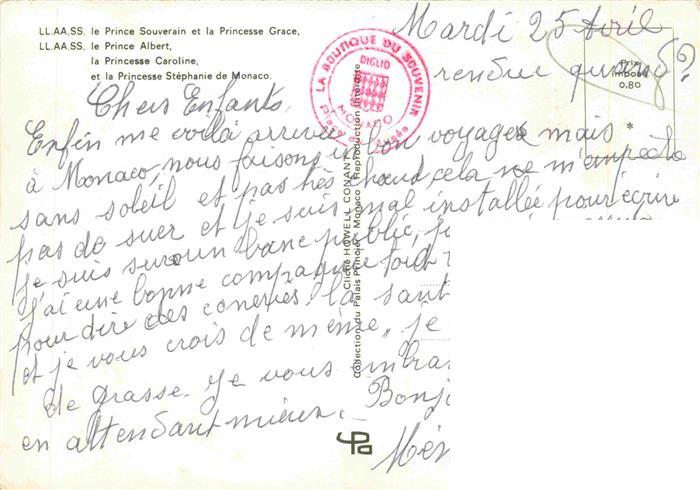 LL.AA.SS. le Prince Souverain et la Princesse Grace,
LL.AA.SS. le Prince Albert,
la Princesse Caroline,
et la Princesse Stéphanie de Monaco.
Mardi 25 Avril
rendue quand?
Prix
imposé
0.80
LA BOUTIQUE DU SOUVENIR
DIGLIO
MONACO
Chers Enfants,
Enfin me voilà arrivée bon voyage mais
à Monaco, nous faisons
sans soleil et pas très chaud, cela ne m'empeche
pas de suer et je suis mal installée pour écrire
je suis sur un banc public,
j'ai une bonne compagnie tout
pour dire des coneries la sant
et je vous crois de même, je
de grasse. Je vous embra
en attendant mieux. Bonj
Mém
Cliché HOWELL CONANT
Collection du Palais Princier - Monaco - Reproduction Interdite